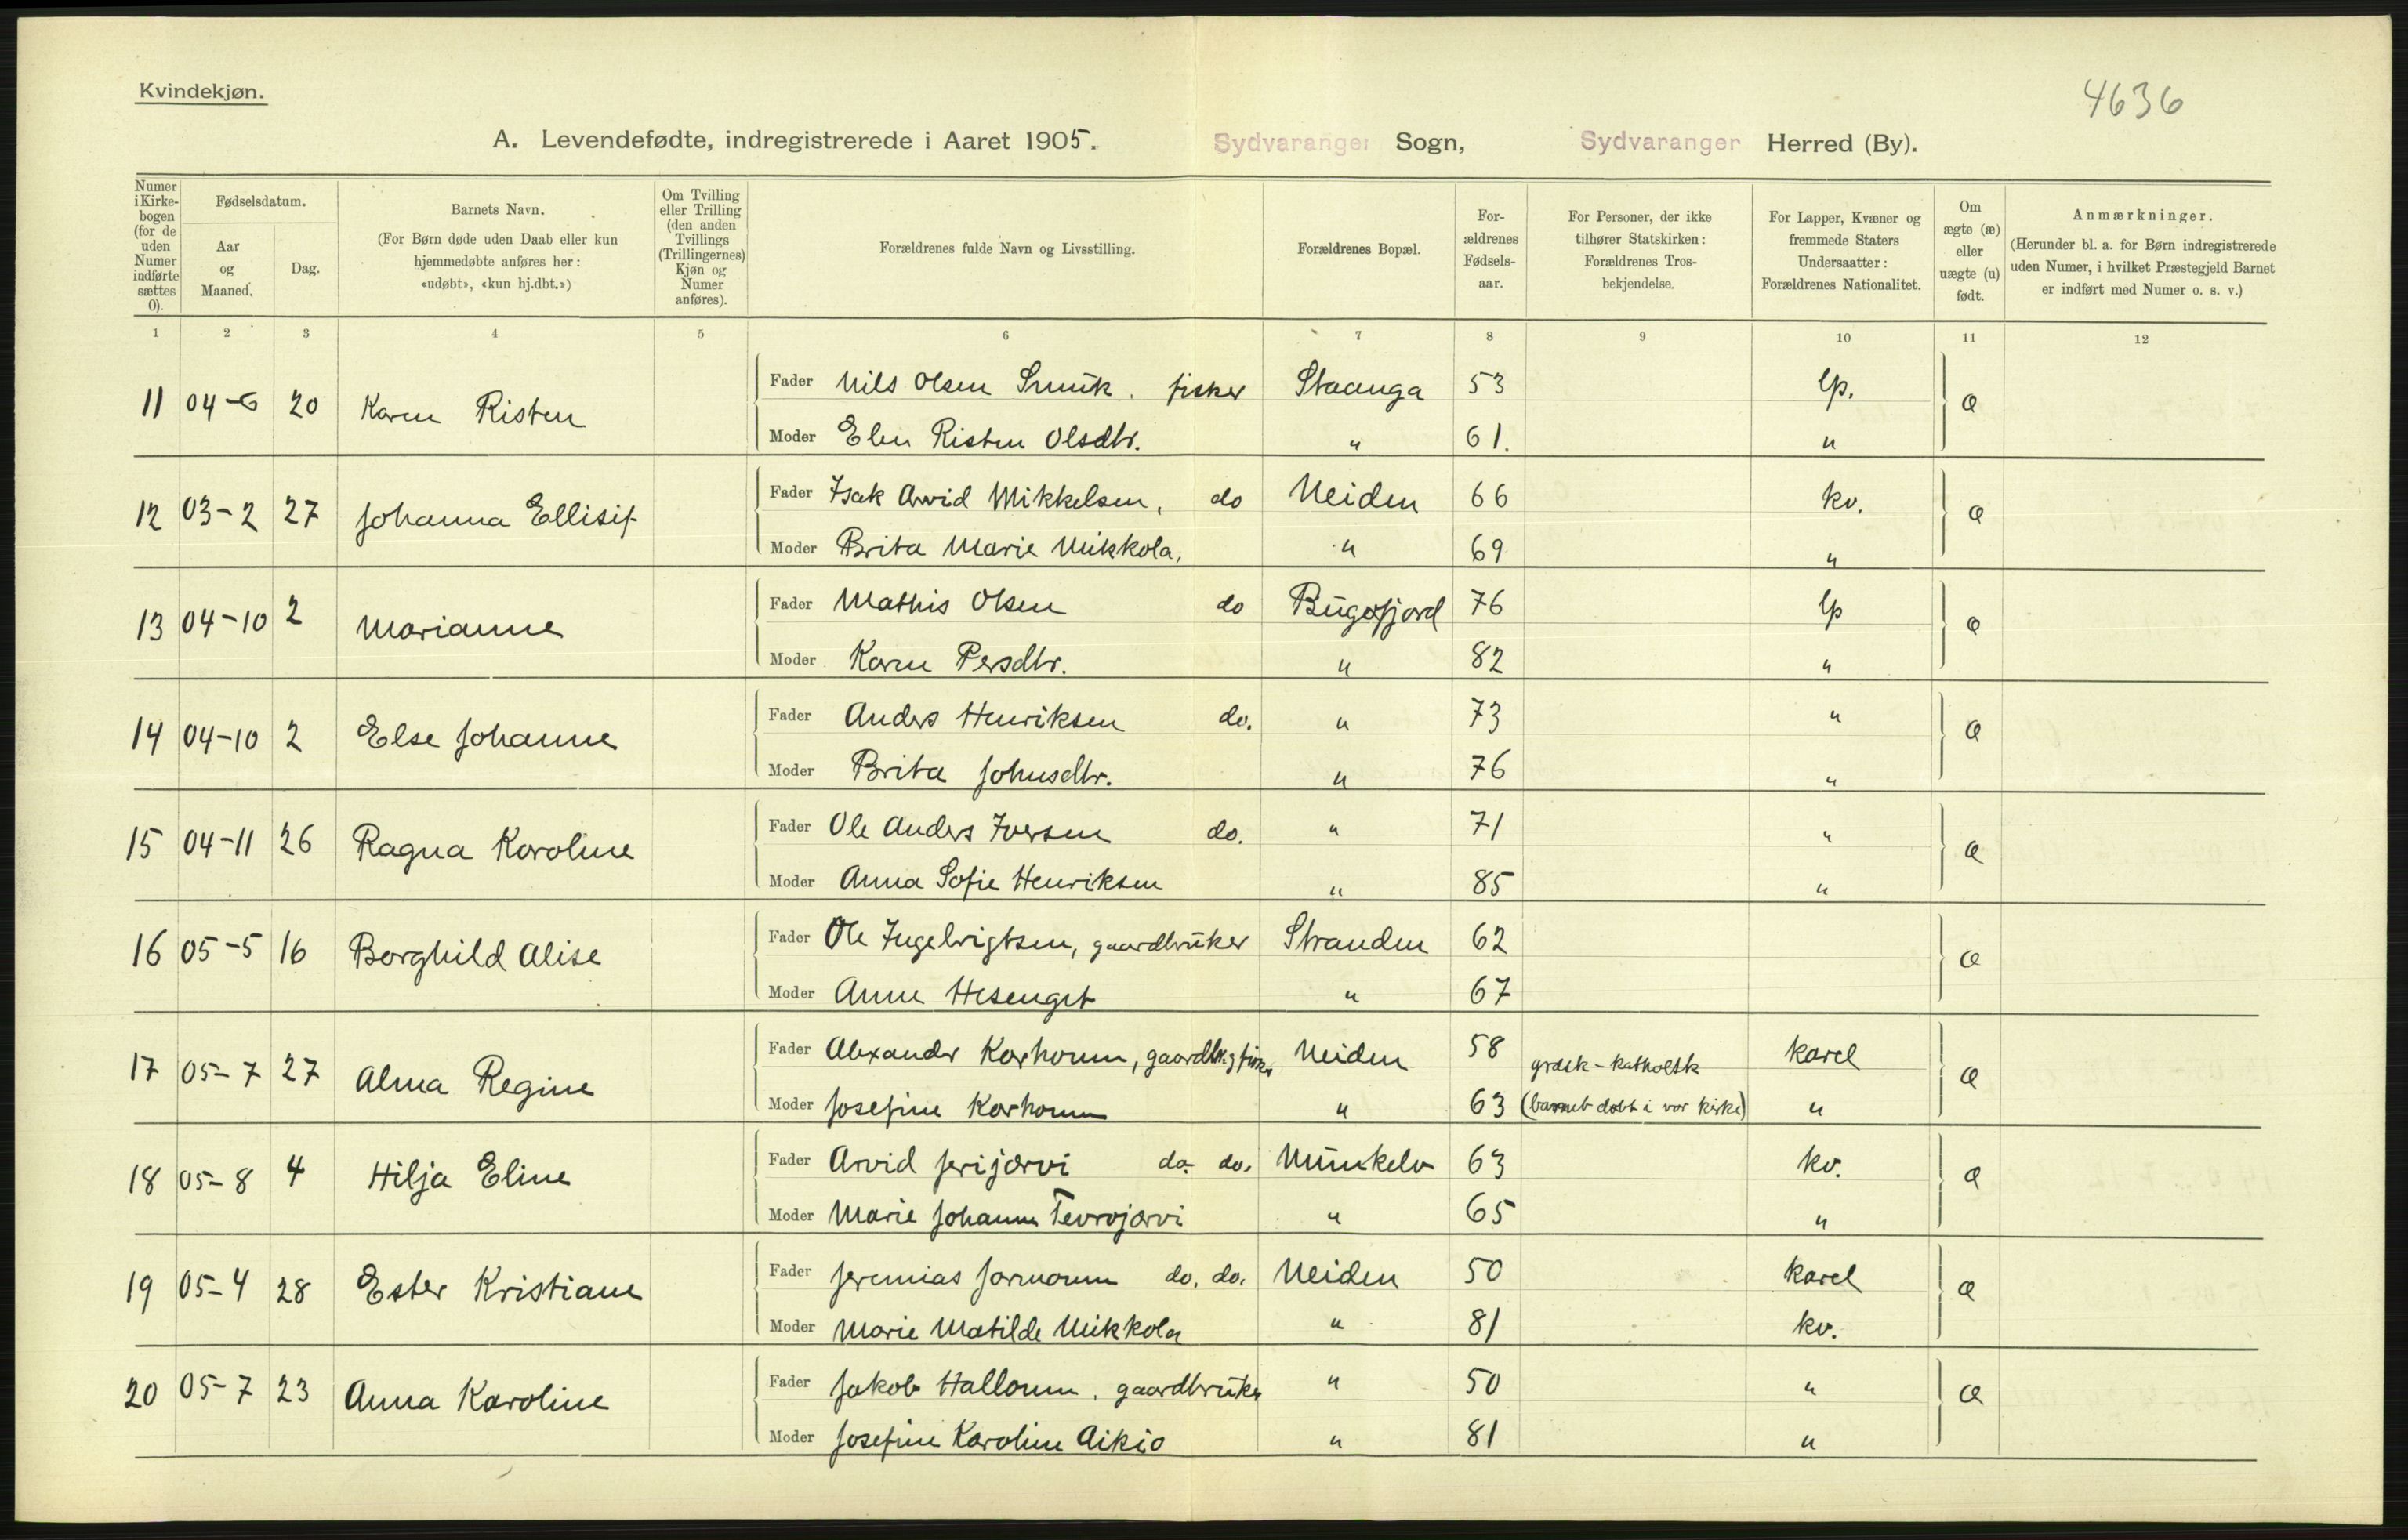 Kvindekjøn.
4636
A. Levendefødte, indregistrerede i Aaret 1905. Sydvaranger Sogn, Sydvaranger Herred (By).
Numer i Kirke-bogen (for de uden Numer indførte sættes 0).
Fødselsdatum.
Aar og Maaned.
Dag.
Barnets Navn.
(For Børn døde uden Daab eller kun hjemmedøbte anføres her: «udøbt», «kun hj.dbt.»)
Om Tvilling eller Trilling (den anden Tvillings (Trillingernes) Kjøn og Numer anføres).
Forældrenes fulde Navn og Livsstilling.
Forældrenes Bopæl.
For-ældrenes Fødsels-aar.
For Personer, der ikke tilhører Statskirken: Forældrenes Tros-bekjendelse.
For Lapper, Kvæner og fremmede Staters Undersaatter: Forældrenes Nationalitet.
Om ægte (æ) eller uægte (u) født.
Anmærkninger.
(Herunder bl. a. for Børn indregistrerede uden Numer, i hvilket Præstegjeld Barnet er indført med Numer o. s. v.)
1 2 3 4 5 6 7 8 9 10 11 12
11 04-6 20 Karen Risten Fader Nils Olsen Smuk. fisker Staanga 53 lp. æ
Moder Elen Risten Olsdtr. " 61. "
12 03-2 27 Johanna Ellisif Fader Isak Arvid Mikkelsen, do Neiden 66 kv. æ
Moder Brita Marie Mikkola, " 69 "
13 04-10 2 Marianne Fader Mathis Olsen do Bugøfjord 76 lp æ
Moder Karen Persdtr. " 82 "
14 04-10 2 Else Johanne Fader Anders Henriksen do. " 73 " æ
Moder Brita Johnsdtr. " 76 "
15 04-11 26 Ragna Karoline Fader Ole Anders Iversen do. " 71 " æ
Moder Anna Sofie Henriksen " 85 "
16 05-5 16 Borghild Alise Fader Ole Ingebrigtsen, gaardbruker Stranden 62 æ
Moder Anne Hesenget " 67
17 05-7 27 Alma Regine Fader Alexander Korhonen, gaardbr. og fisker Neiden 58 græsk-katholsk karel æ
Moder Josefine Korhonen " 63 (barnet døbt i vor kirke) "
18 05-8 4 Hilja Eline Fader Arvid Jerijærvi do. do. Munkelv 63 kv. æ
Moder Marie Johanne Tervojærvi " 65 "
19 05-4 28 Ester Kristiane Fader Jeremias Jormonen do. do. Neiden 50 karel æ
Moder Marie Matilde Mikkola " 81 kv.
20 05-7 23 Anna Karoline Fader Jakob Hallonen, gaardbruker " 50 " æ
Moder Josefine Karoline Aikio " 81 "